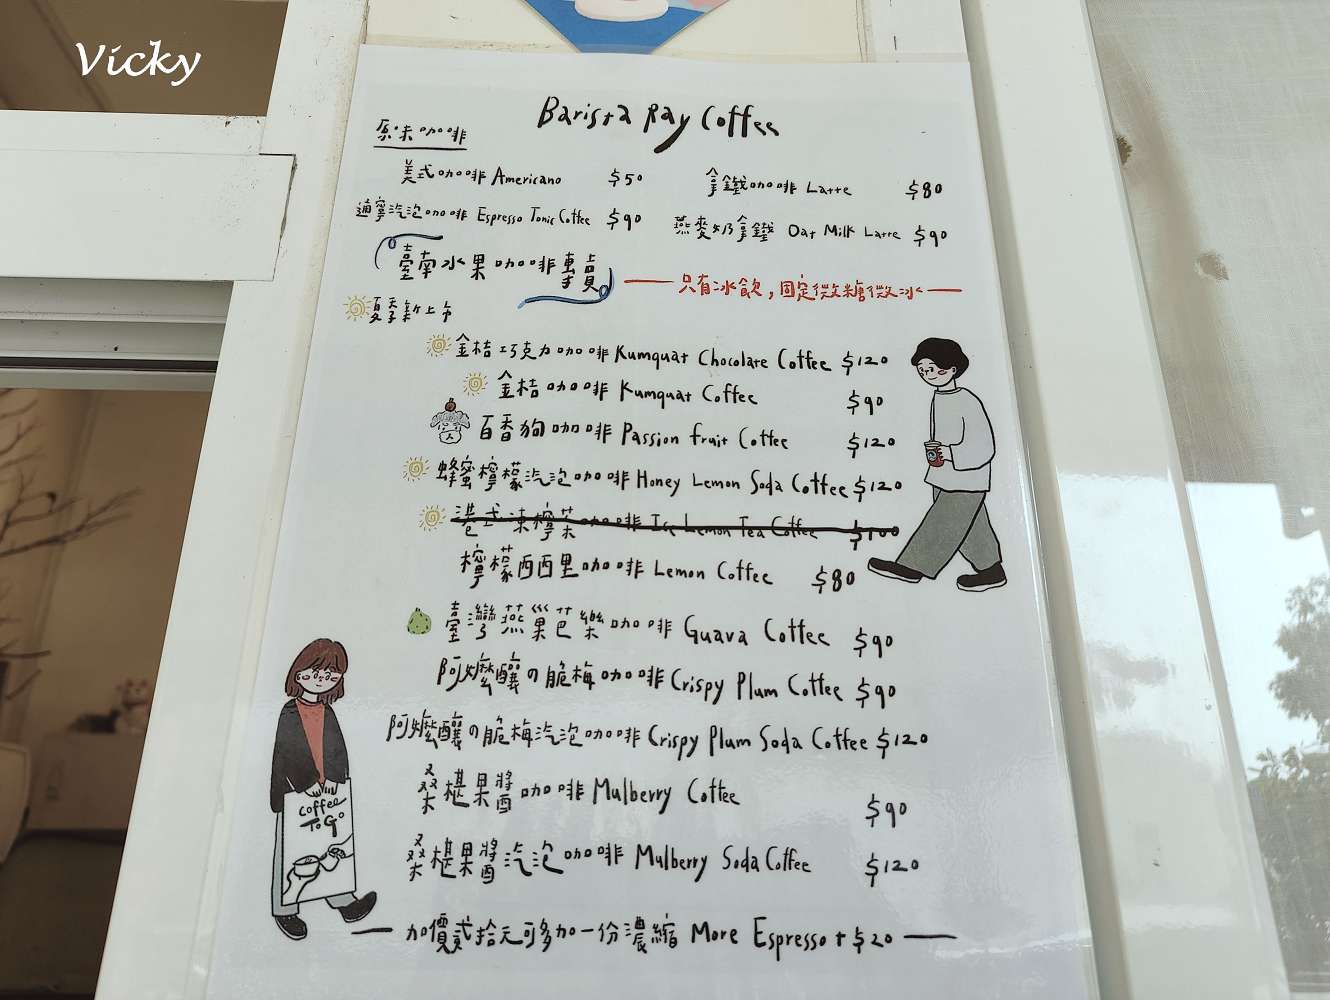 Vicky
Barista Ray Coffee
原味咖啡
美式咖啡 Americano $50
拿鐵咖啡 Latte $80
通寧汽泡咖啡 Espresso Tonic Coffee $90
燕麥奶拿鐵 Oat Milk Latte $90
臺南水果咖啡專賣
只有冰飲，固定微糖微冰
夏季新上市
金桔巧克力咖啡 Kumquat Chocolate Coffee $120
金桔咖啡 Kumquat Coffee $90
百香狗咖啡 Passion fruit Coffee $120
蜂蜜檸檬汽泡咖啡 Honey Lemon Soda Coffee $120
港式凍檸茶咖啡 Ice Lemon Tea Coffee $100
檸檬西西里咖啡 Lemon Coffee $80
臺灣燕巢芭樂咖啡 Guava Coffee $90
阿嬤釀の脆梅咖啡 Crispy Plum Coffee $90
阿嬤釀の脆梅汽泡咖啡 Crispy Plum Soda Coffee $120
桑椹果醬咖啡 Mulberry Coffee $90
桑椹果醬汽泡咖啡 Mulberry Soda Coffee $120
coffee
TO GO
加價貳拾元可多加一份濃縮 More Espresso + $20